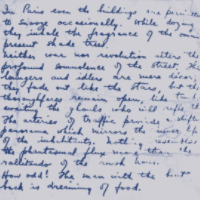 In Paris even the buildings are permitted
to snooze occasionally. While dozing
they inhale the fragrance of the
present shade trees.
Neither war nor revolution alters the
profound somnolence of the street. The
loungers and idlers are mere décor,
they fade out, like the stars, but the
thoroughfares remain open, like
wounds, the ghouls who will
The arteries of traffic provide a
panorama which mirrors the inner life
of the inhabitants. Nothing resembles
the phantasmal flux more than the
rallitudes of the rush hour.
How odd! The man with the
back is dreaming of food.